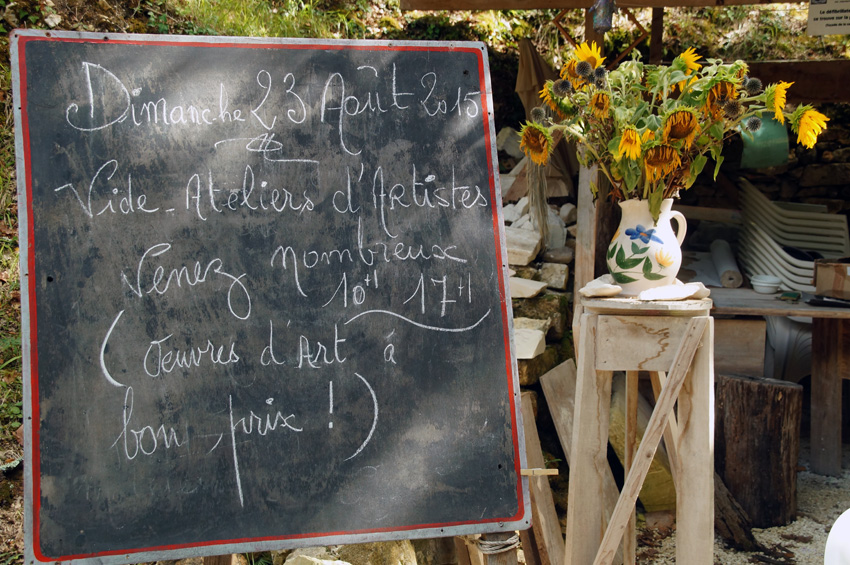 Dimanche 23 Août 2015
Vide-Ateliers d'Artistes
Venez nombreux
10H 17H
(Œuvres d'Art à
bon prix !)